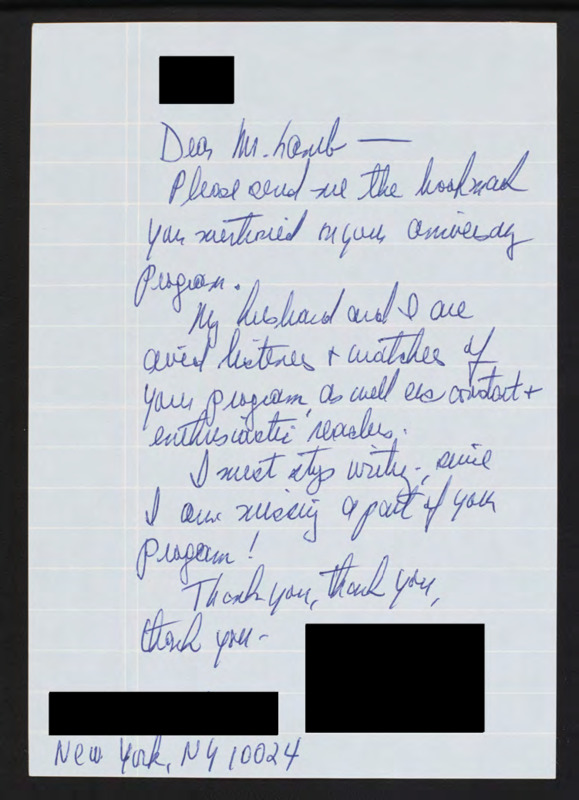 Dear Mr. Lamb —
Please send me the bookmark
you mentioned on your anniversary
program.
My husband and I are
avid listeners + watchers of
your program, as well as constant +
enthusiastic readers.
I must stop writing, since
I am missing a part of your
program!
Thank you, thank you,
thank you -
New York, NY 10024